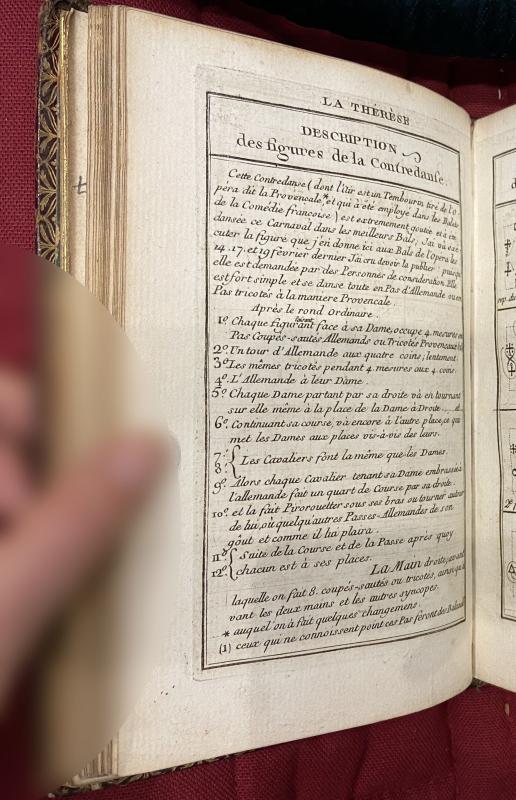 LA THÉRÈSE
DESCRIPTION
des figures de la Contredanse.
Cette Contredanse (dont l'air est un Tembourin tiré de l'o-
péra dit la Provençale,* et qui à été employé dans les Balets
de la Comédie françoise) est extremement goutée et à été
dansée ce Carnaval dans les meilleurs Bals; J'ai vû exe-
cuter la figure que j'en donne ici aux Bals de l'opera les
14. 17. et 19 février dernier. J'ai cru devoir la publier puisqu'
elle est demandée par des Personnes de consideration. Elle
est fort simple et se danse toute en Pas d'Allemande ou en
Pas tricotés à la maniere Provençale.
Après le rond ordinaire.
1º. Chaque figurant faisant face à sa Dame, occupe 4. mesures en
Pas Coupés-sautés Allemands ou Tricotés Provençaux
2º. Un tour d'Allemande aux quatre coins; lentement.
3º. Les mêmes tricotés pendant 4. mesures aux 4. coins.
4º. L'Allemande à leur Dame.
5º. Chaque Dame partant par sa droite và en tournant
sur elle même à la place de la Dame à Droite ... et
6º. Continuant sa course, và encore à l'autre place, ce qui
met les Dames aux places vis-à-vis des leurs.
7º. 8º. { Les Cavaliers font la même que les Dames.
9º. Alors chaque Cavalier tenant sa Dame embrassée à
l'allemande fait un quart de Course par sa droite.
10º. et la fait Pirorouetter sous ses bras ou tourner autour
de lui, où quelqu'autres Passes-Allemandes de son
goût et comme il lui plaira.
11º. 12º. { Suite de la Course et de la Passe après quoy
chacun est à ses places.
La Main droite, avant
laquelle on fait 8. coupés-sautés ou tricotés, ainsi que
vant les deux mains et les autres syncopes.
* auquel on à fait quelques changemens.
(1) ceux qui ne connoissent point ces Pas feront des Balancés